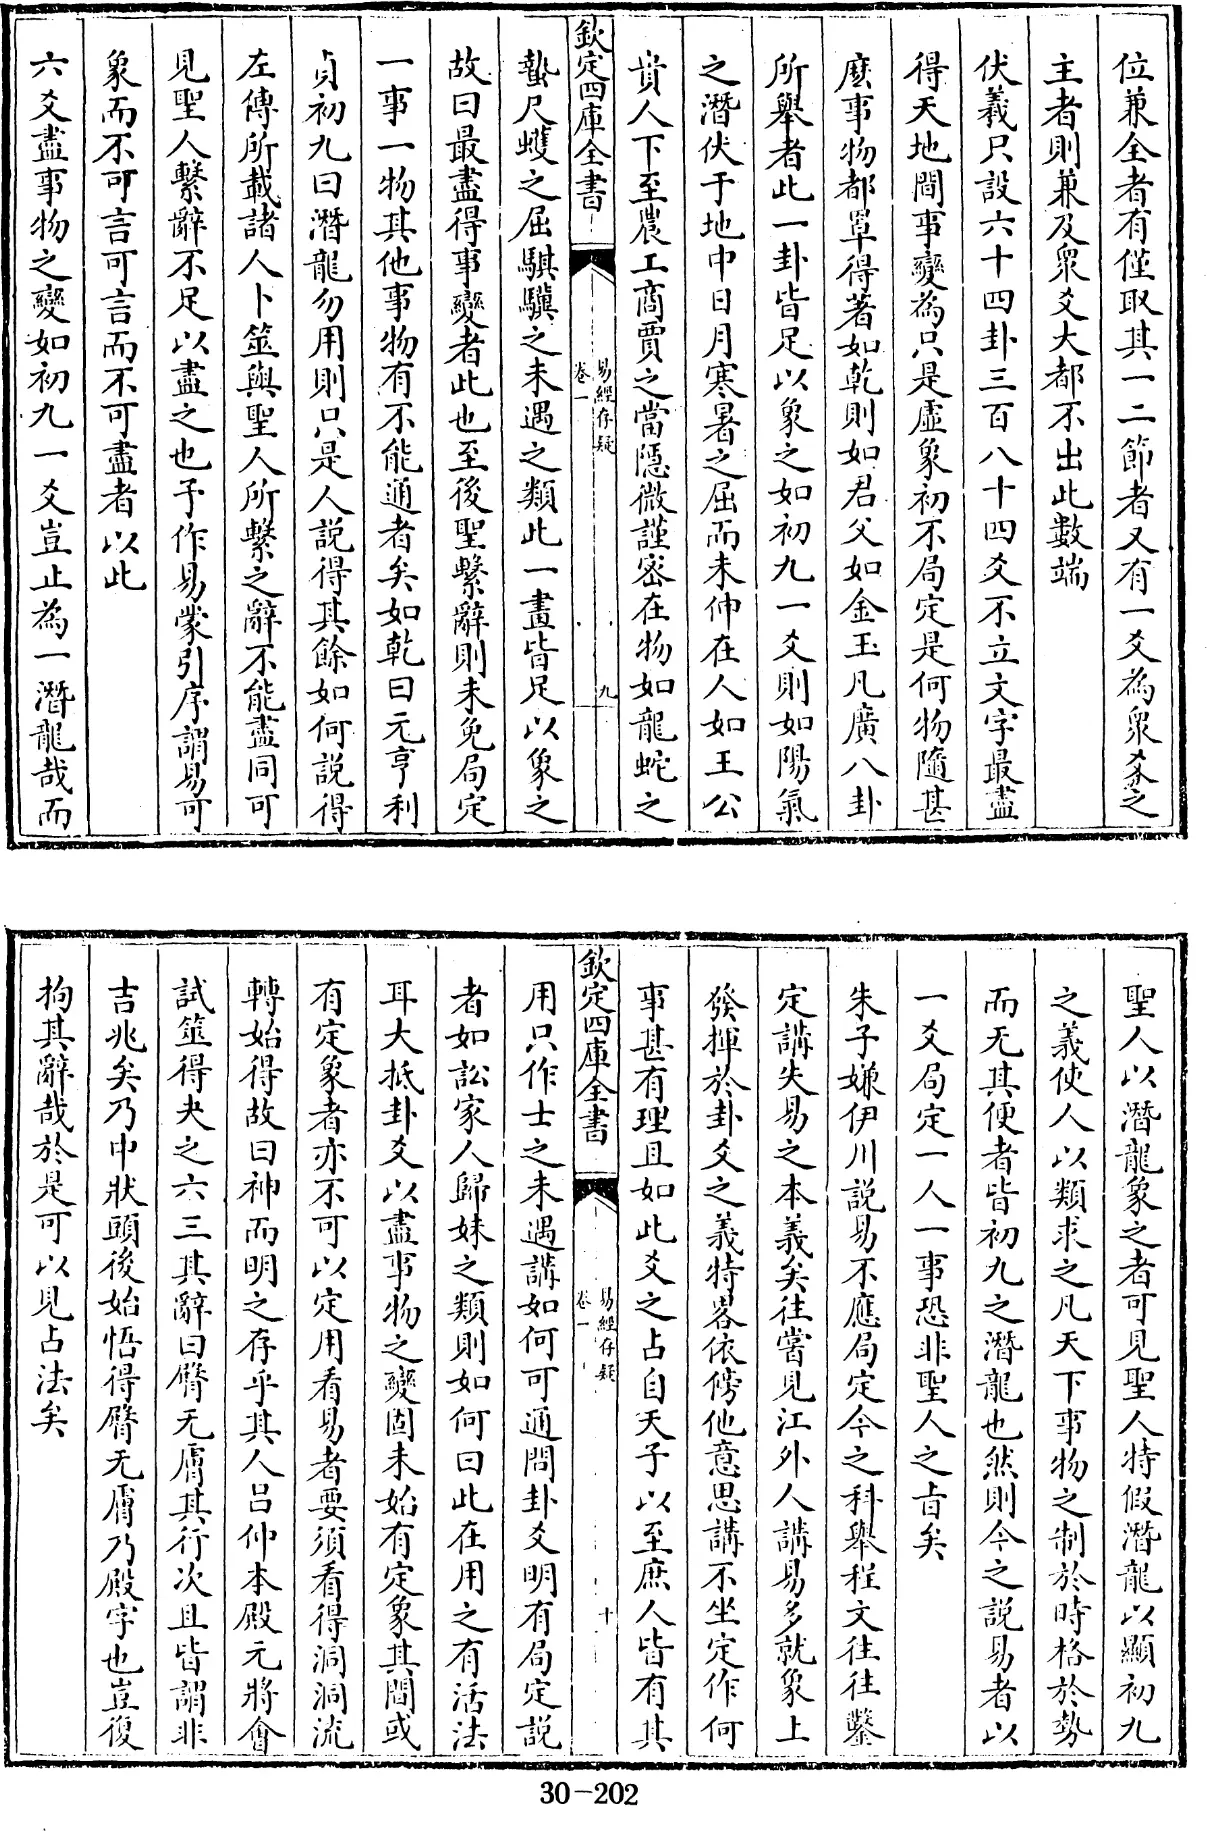 位兼全者有僅取其一二節者又有一爻為衆爻之
主者則兼及衆爻大都不出此數端
伏羲只設六十四卦三百八十四爻不立文字最盡
得天地間事變為只是虛象初不局定是何物隨甚
麽事物都罩得著如乾則如君父如金玉凡廣八卦
所舉者此一卦皆足以象之如初九一爻則如陽氣
之潛伏于地中日月寒暑之屈而未伸在人如王公
貴人下至農工商賈之當隱微謹密在物如龍蛇之
欽定四庫全書
易經存疑
卷一
九
蟄尺蠖之屈騏驥之未遇之類此一畫皆足以象之
故曰最盡得事變者此也至後聖繫辭則未免局定
一事一物其他事物有不能通者矣如乾曰元亨利
貞初九曰潛龍勿用則只是人說得其餘如何說得
左傳所載諸人卜筮與聖人所繫之辭不能盡同可
見聖人繫辭不足以盡之也予作易蒙引序謂易可
象而不可言可言而不可盡者以此
六爻盡事物之變如初九一爻豈止為一潛龍哉而
聖人以潛龍象之者可見聖人特假潛龍以顯初九
之義使人以類求之凡天下事物之制於時格於勢
而无其便者皆初九之潛龍也然則今之說易者以
一爻局定一人一事恐非聖人之旨矣
朱子嫌伊川說易不應局定今之科舉程文往往鑿
定講失易之本義矣往嘗見江外人講易多就象上
發揮於卦爻之義特畧依傍他意思講不坐定作何
事甚有理且如此爻之占自天子以至庶人皆有其
欽定四庫全書
易經存疑
卷一
十
用只作士之未遇講如何可通問卦爻明有局定說
者如訟家人歸妹之類則如何曰此在用之有活法
耳大抵卦爻以盡事物之變固未始有定象其間或
有定象者亦不可以定用看易者要須看得洞洞流
轉始得故曰神而明之存乎其人呂仲本殿元將會
試筮得夬之六三其辭曰臀无膚其行次且皆謂非
吉兆矣乃中狀頭後始悟得臀无膚乃殿字也豈復
拘其辭哉於是可以見占法矣
30-202